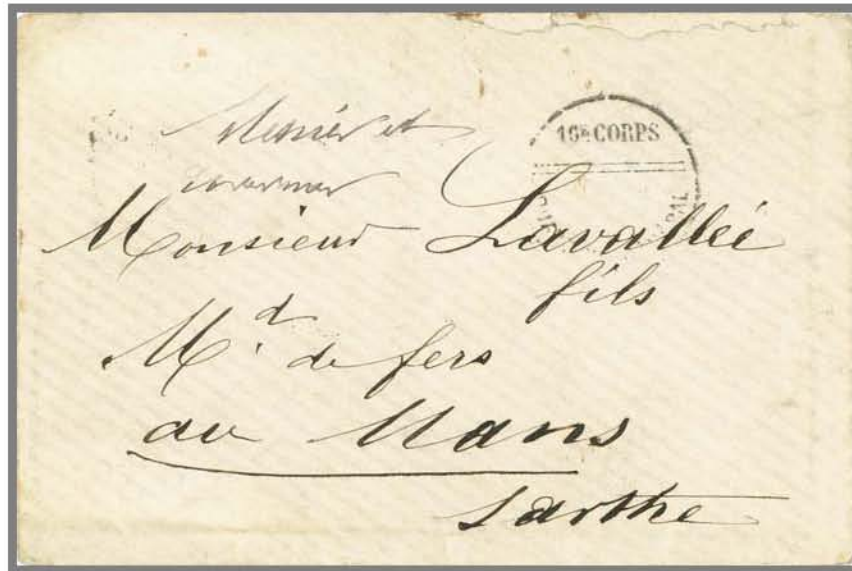 16e CORPS
Monsieur Lavallée
fils
Md. de fers
au Mans
Sarthe